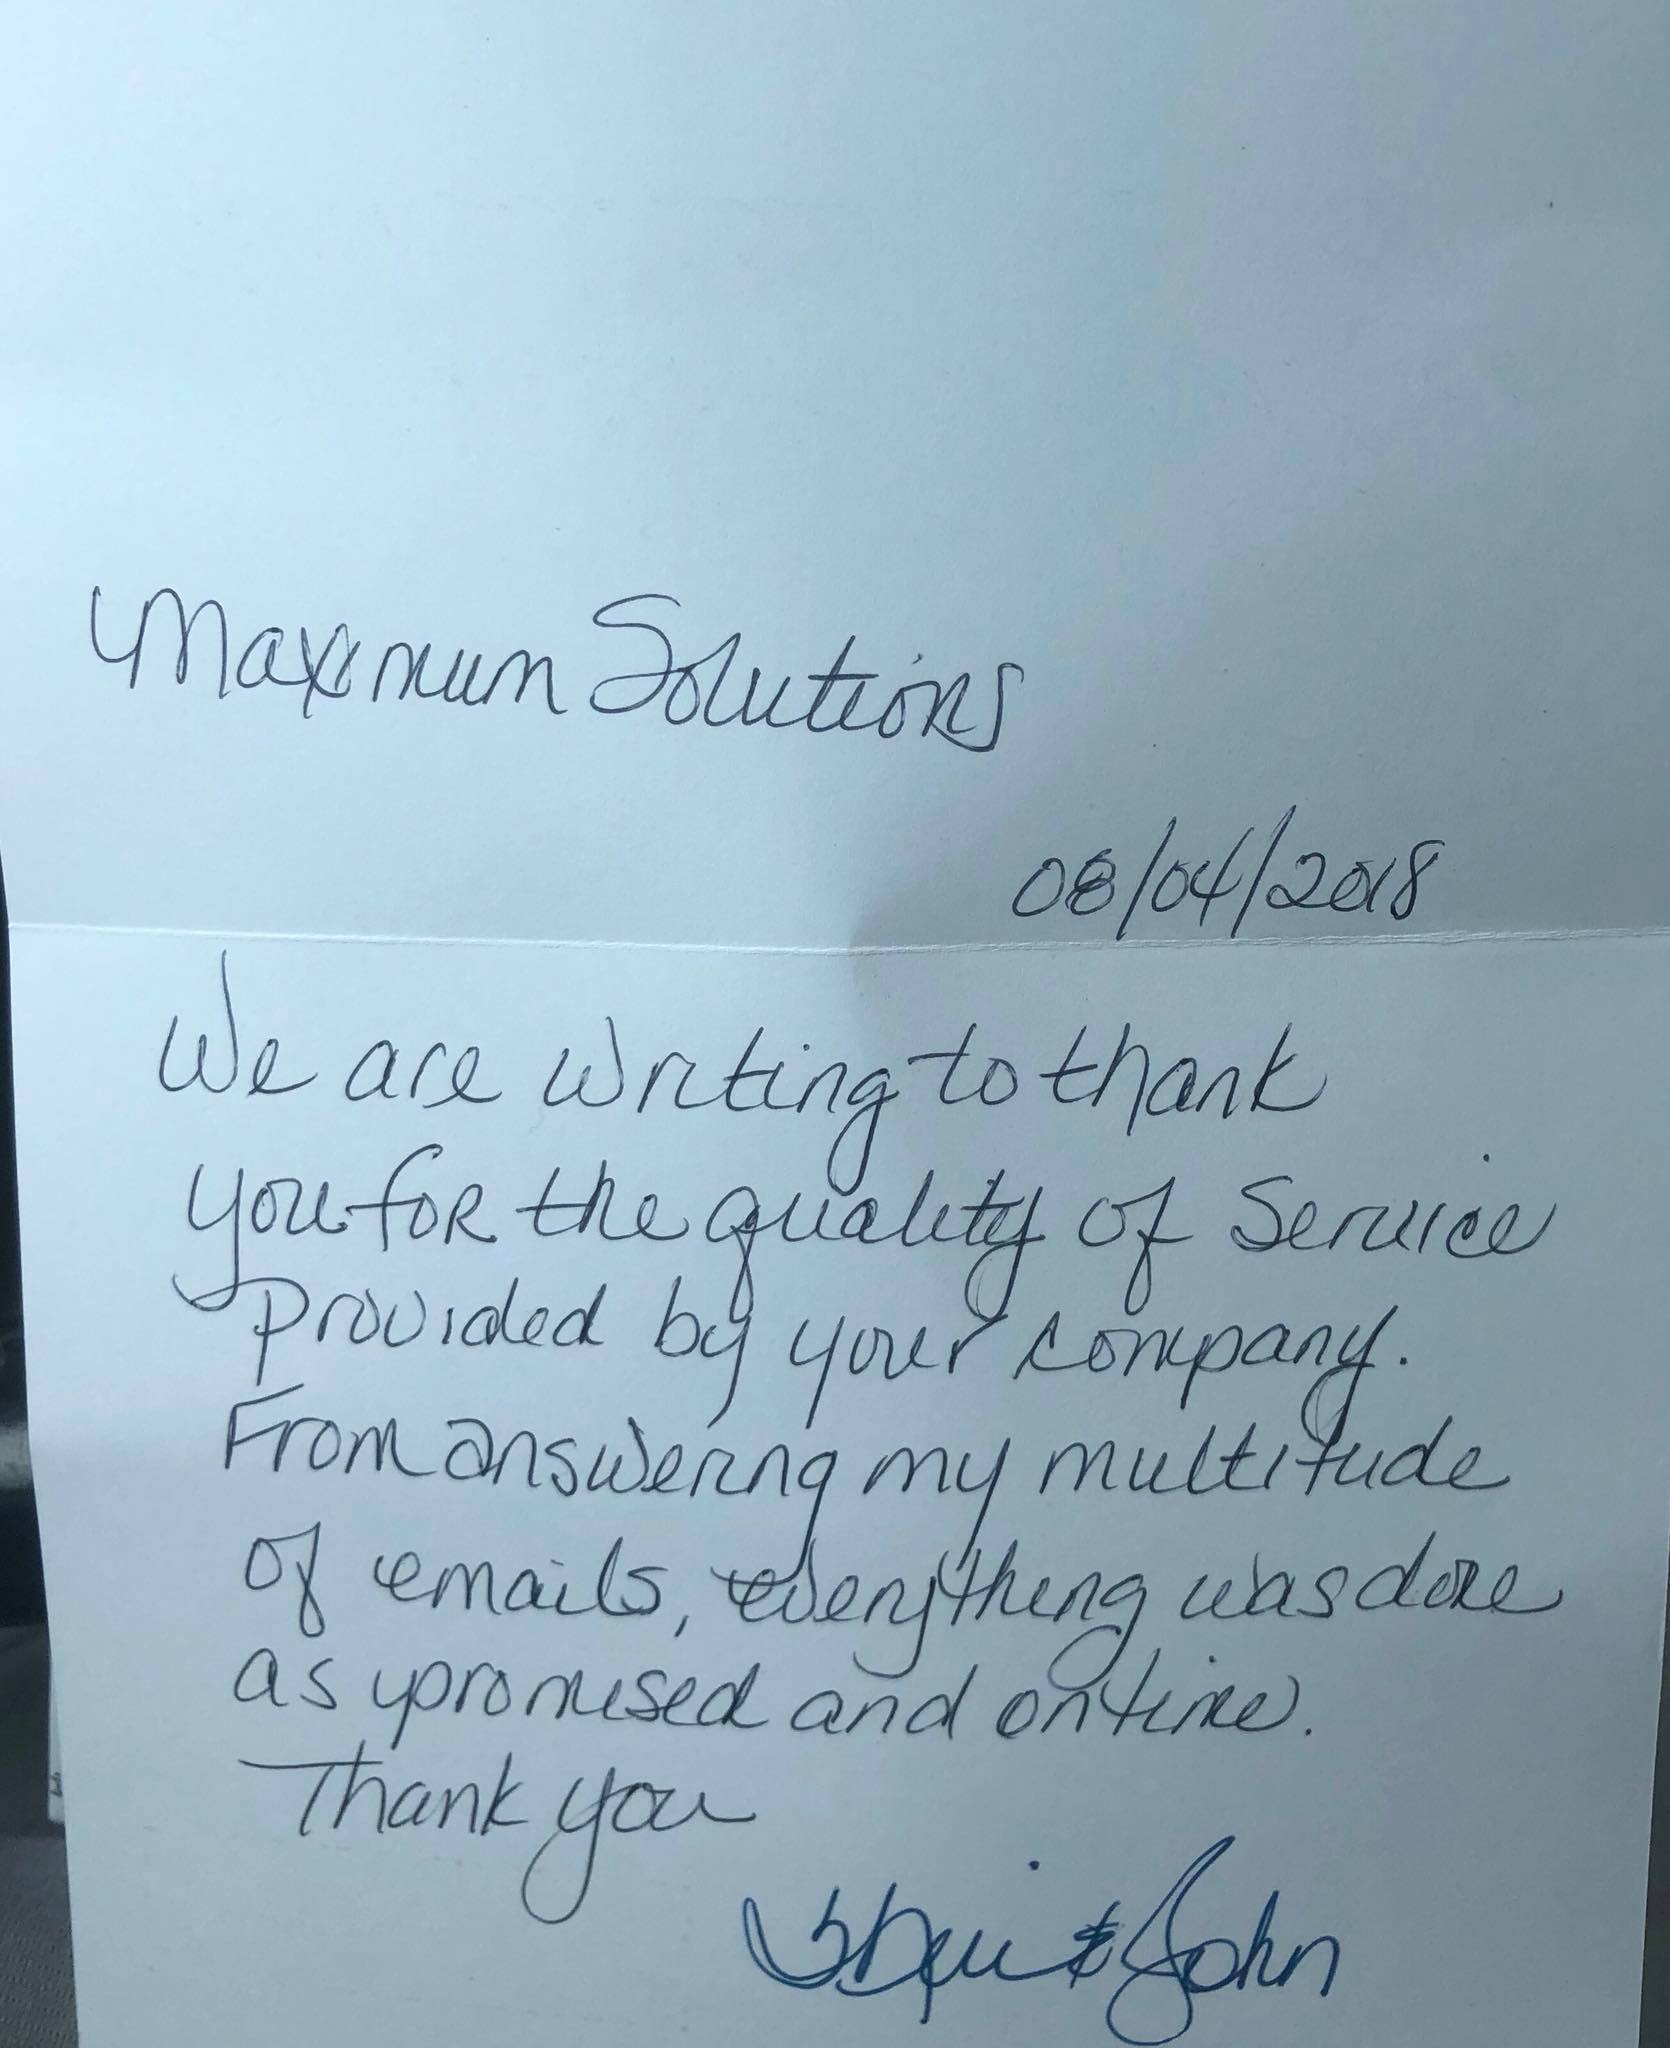 Maximum Solutions
08/04/2018
We are writing to thank
you for the quality of Service
Provided by your company.
From answering my multitude
of emails, everything was done
as promised and on time.
Thank you
& John